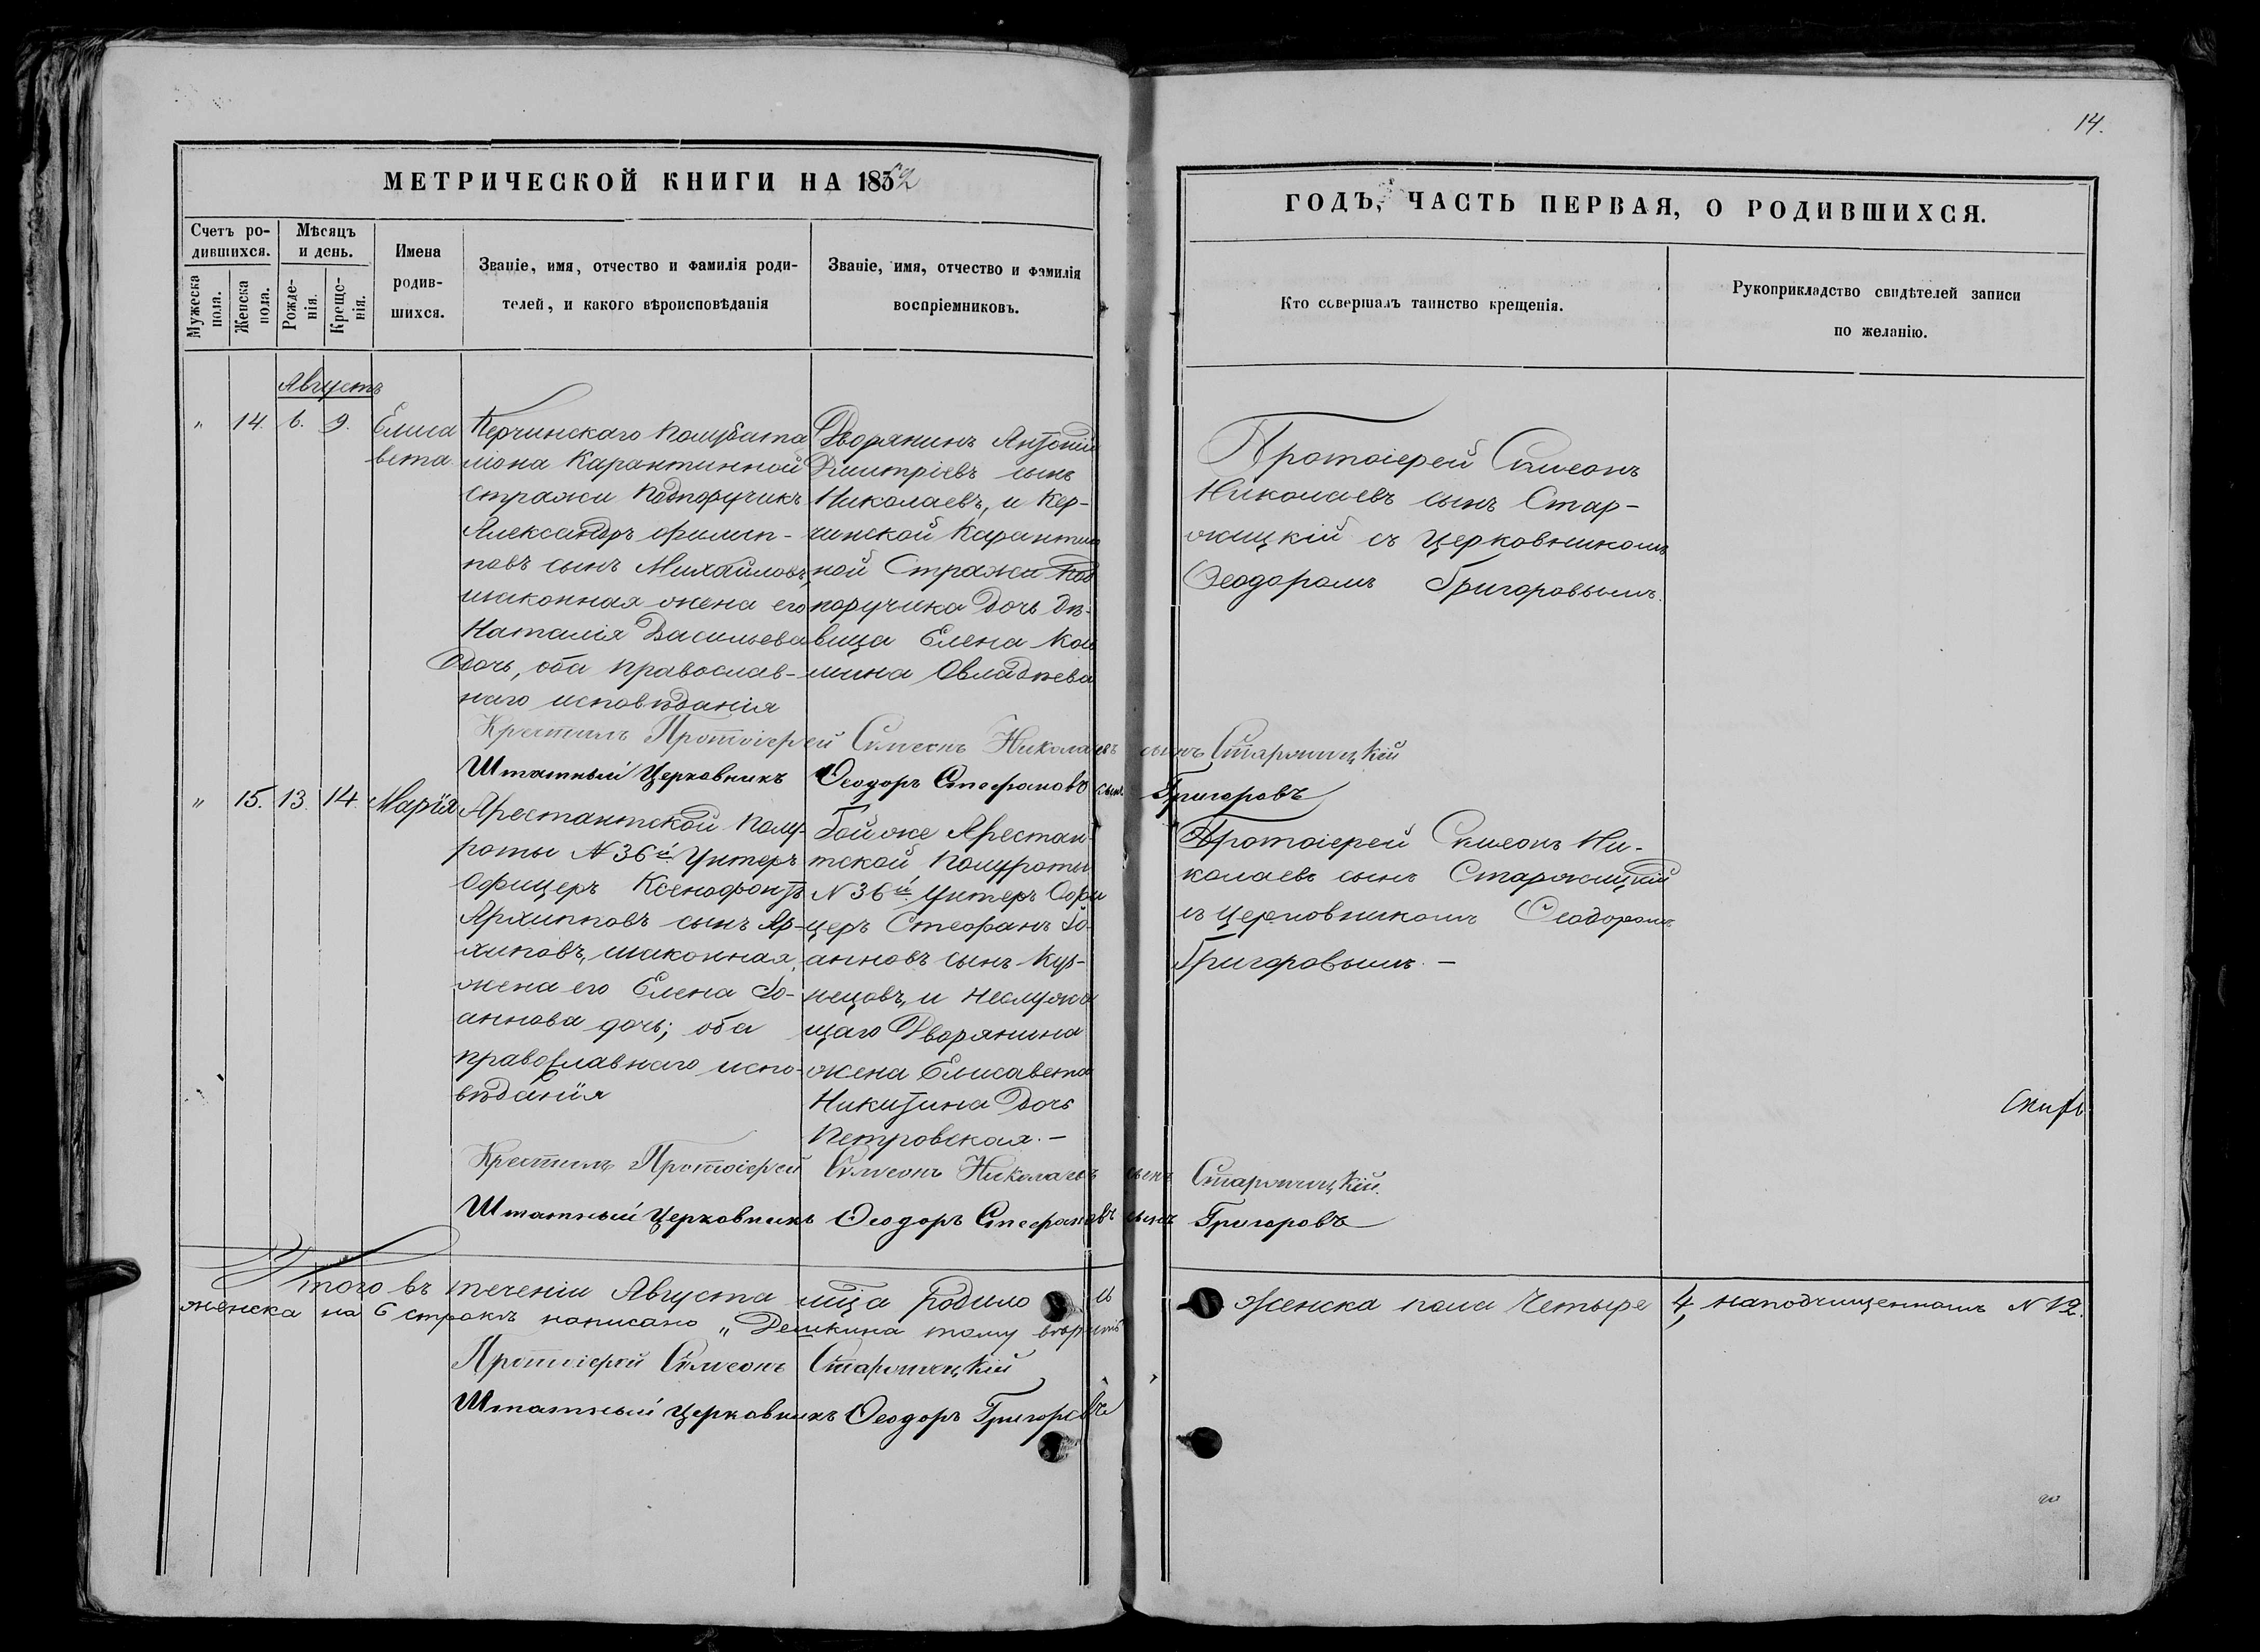 14.
МЕТРИЧЕСКОЙ КНИГИ НА 1852
ГОДЪ, ЧАСТЬ ПЕРВАЯ, О РОДИВШИХСЯ.
Счетъ ро-
дившихся.
Мужеска пола.
Женска пола.
Мѣсяцъ
и день.
Рожде-
нія.
Креще-
нія.
Имена
родив-
шихся.
Званіе, имя, отчество и фамилія роди-
телей, и какого вѣроисповѣданія
Званіе, имя, отчество и фамилія
воспріемниковъ.
Кто совершалъ таинство крещенія.
Рукоприкладство свидѣтелей записи
по желанію.
Августъ
" 14. 6. 9.
Елиса
вета
Керчинскаго Полубата
ліона Карантинной
Стражи Подпоручикъ
Александръ Филип-
повъ сынъ Михайловъ,
изаконная жена его
Наталія Васильева
дочь, оба православ-
наго исповѣданія
Дворянинъ Антоній
Димитріевъ сынъ
Николаевъ, и Кер-
чинской Карантин
ной Стражи Под
поручика дочь дѣ-
вица Елена
Протоіерей Симеонъ
Николаевъ сынъ Стар-
жицкій съ Церковникомъ
Ѳеодоромъ Григоровымъ.
Крестилъ Протоіерей Симеонъ Николаевъ сынъ Старжицкій
Штатный Церковникъ Ѳеодоръ Стефановъ сынъ Григоровъ
" 15. 13. 14.
Марія
Арестантской полу-
роты N 36й Унтеръ
Офицеръ Ксенофонтъ
Архиповъ сынъ Ар-
хиповъ, изаконная
жена его Елена Іо-
аннова дочь; оба
православнаго испо-
вѣданія
Той же Арестан-
тской Полуроты
N 36й Унтеръ Офи
церъ Стефанъ Іо-
анновъ сынъ Куз-
нецовъ, и неслужа
щаго Дворянина
жена Елисавета
Никитина дочь
Петровская. —
Протоіерей Симеонъ Ни-
колаевъ сынъ Старжицкій
съ Церковникомъ Ѳеодоромъ
Григоровымъ. —
Крестилъ Протоіерей Симеонъ Николаевъ сынъ Старжицкій.
Штатный Церковникъ Ѳеодоръ Стефановъ сынъ Григоровъ
Итого въ теченіи Августа мца родило сь женска пола Четыре 4,
женска на 6 строкѣ написано
Протоіерей Симеонъ Старжицкій
Штатный Церковникъ Ѳеодоръ Григоровъ